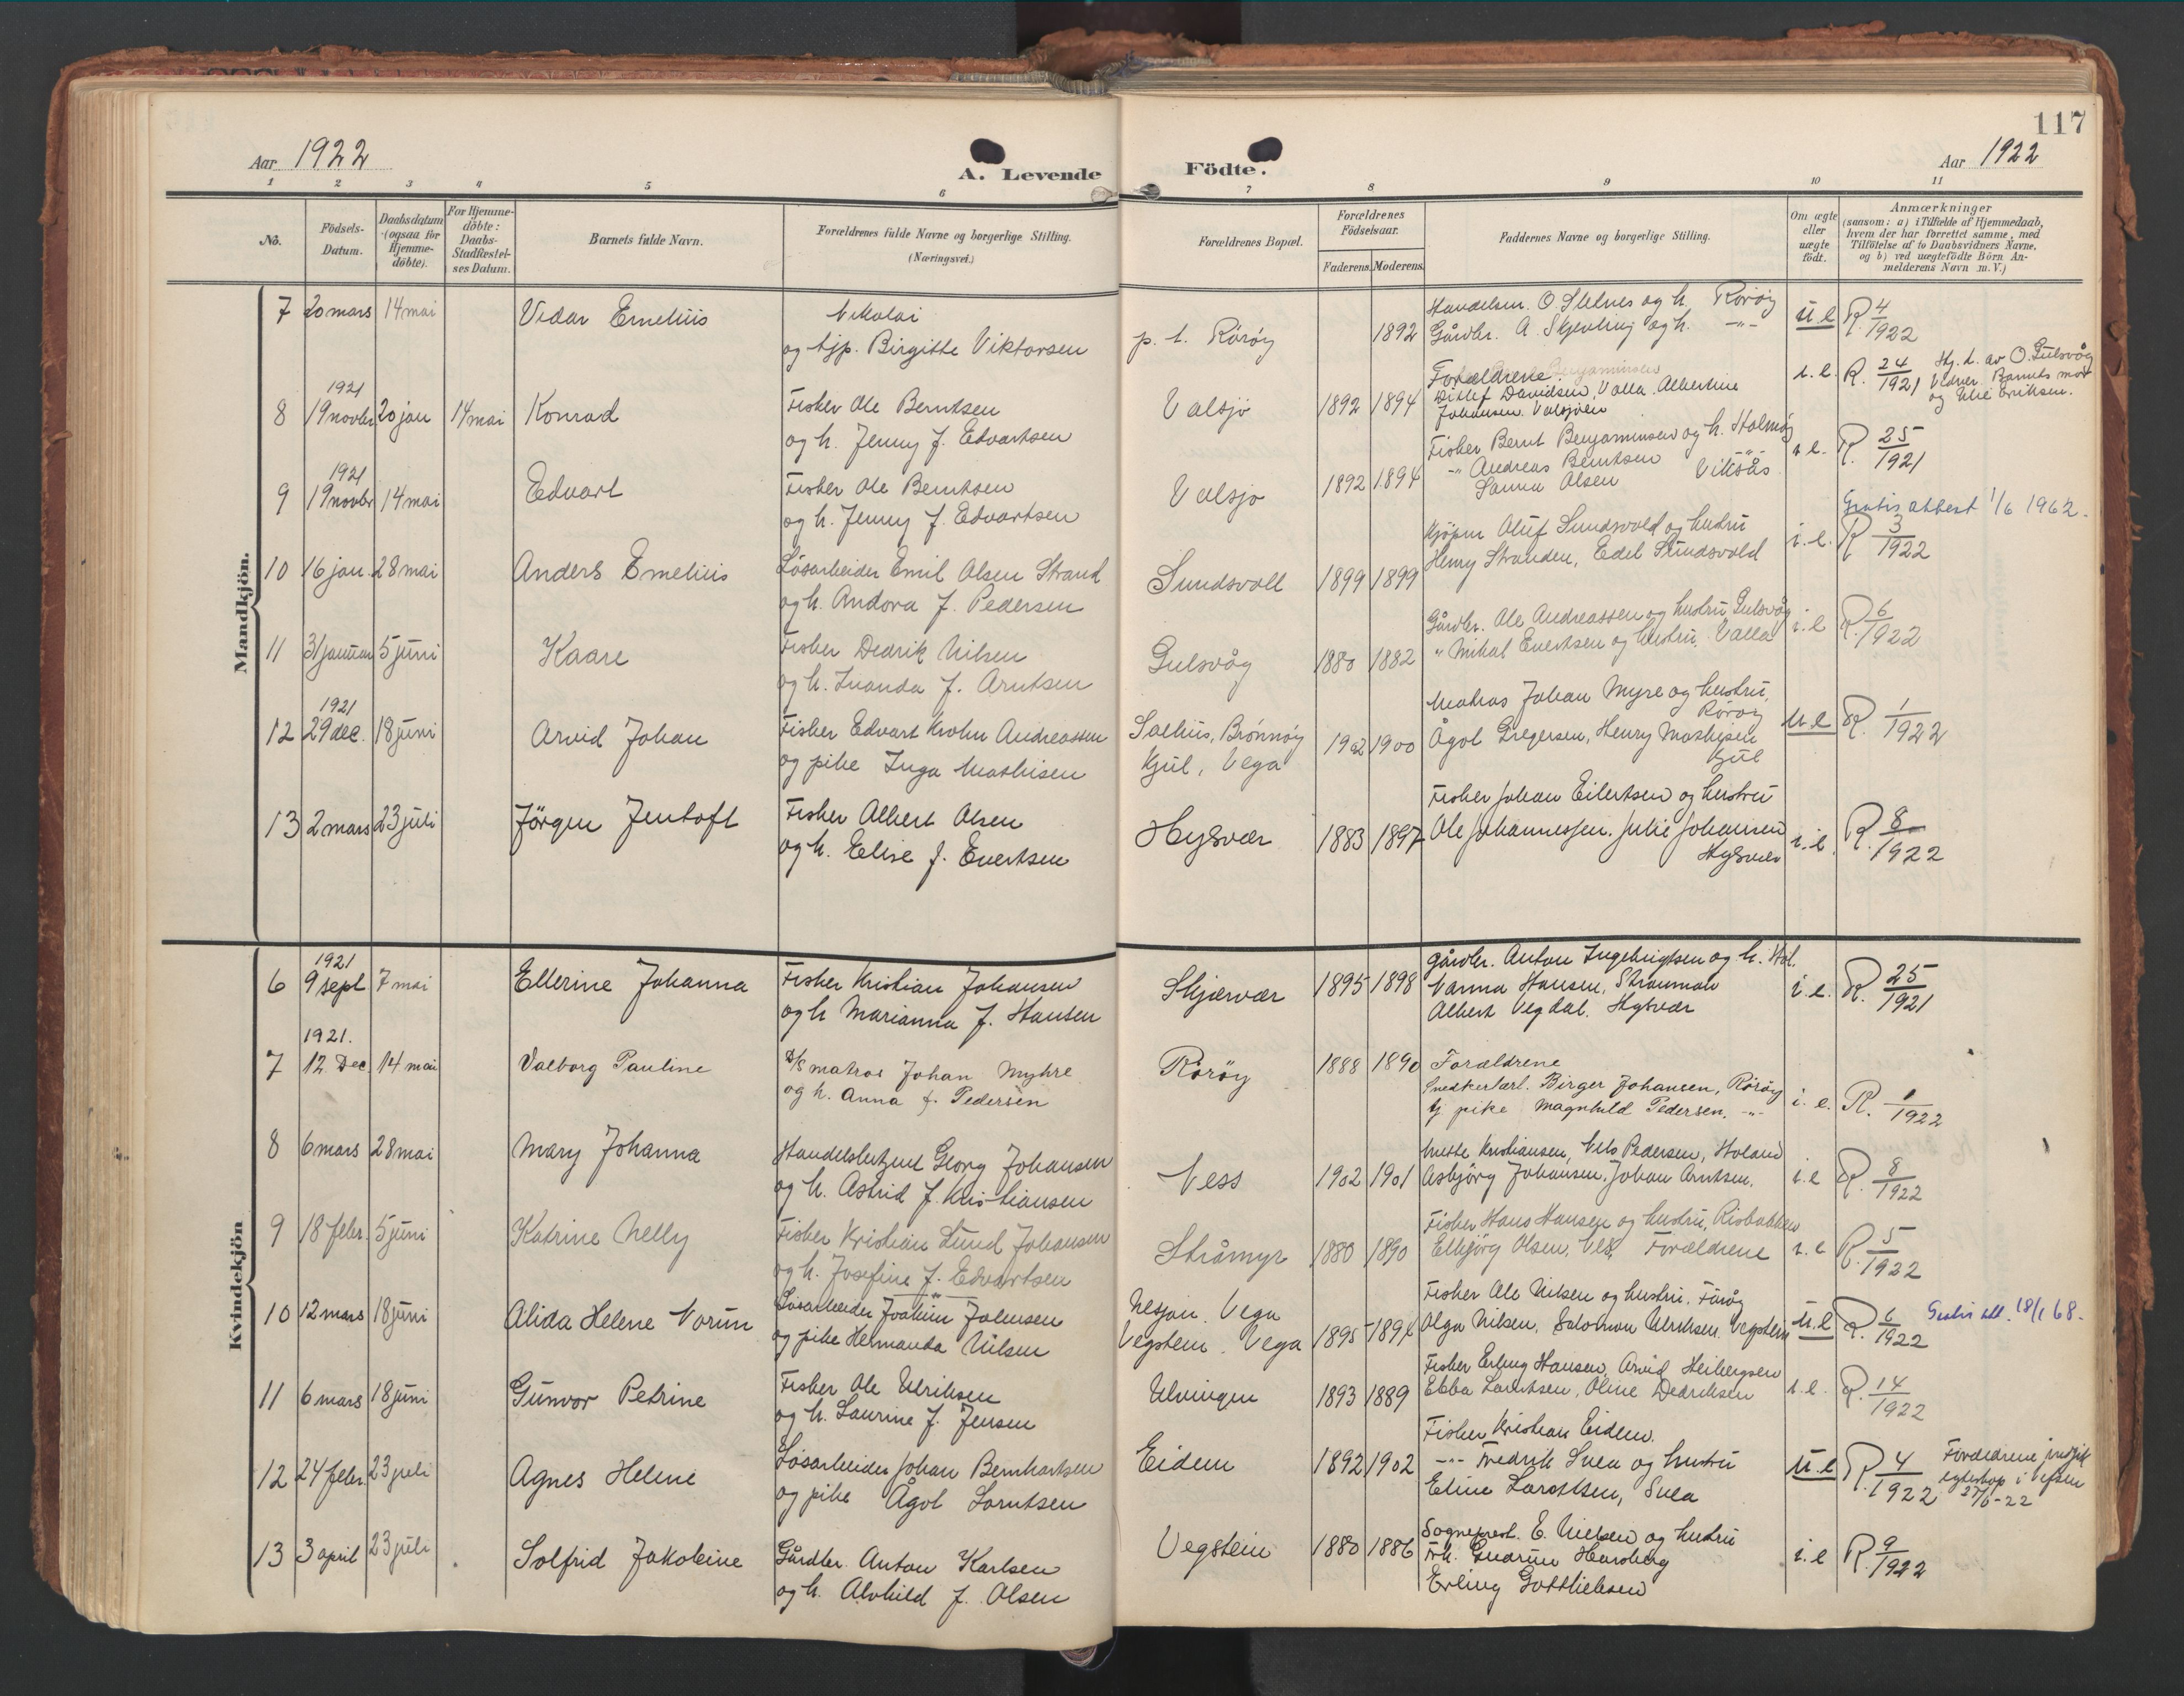 117
Aar 1922
A. Levende
Födte.
Aar 1922
1 2 3 4 5 6 7 8 9 10 11
No.
Födsels-Datum.
Daabsdatum (ogsaa for Hjemme-döbte).
For Hjemme-döbte: Daabs-Stadfæstel-ses Datum.
Barnets fulde Navn.
Forældrenes fulde Navne og borgerlige Stilling.
(Næringsvei.)
Forældrenes Bopæl.
Forældrenes Födselsaar.
Faderens. Moderens.
Faddernes Navne og borgerlige Stilling.
Om ægte eller uægte födt.
Anmærkninger
(saasom: a) i Tilfælde af Hjemmedaab,
hvem der har forrettet samme, med
Tilföielse af to Daabsvidners Navne,
og b) ved uægtefödte Börn An-
melderens Navn m. V.)
Mandkjön.
7 20 mars 14 mai Vidar Emelius
Nikolai
og tjp. Birgitte Viktorsen
p. t. Röröy 1892
Handelsm. O. Sletnes og h. Röröy
Gårdbr. A. Skjevling og h. -"-
u.e R. 4/1922
8 1921 19 novbr 20 jan 14 mai Konrad
Fisker Ole Berntsen
og h. Jenny f. Edvartsen
Valsjö 1892 1894
Forældrene
Ditlef Davidsen, Valla. Albertine
Johansen. Valsjöen
i.e. R. 24/1921
Hj. d. av O. Gulsvåg
Vidner. Barnets mor
og Eriksen.
9 1921 19 novbr 14 mai Edvart
Fisker Ole Berntsen
og h. Jenny f. Edvartsen
Valsjö 1892 1894
Fisker Bernt Benjaminsen og h. Holmöy
-"- Andreas Berntsen -"-
Sanna Olsen Viksås
i.e. R. 25/1921
Gratis attest 1/6 1962.
10 16 jan. 28 mai Anders Emelius
Løsarbeider Emil Olsen Strand
og h. Andora f. Pedersen
Sundsvoll 1899 1899
Kjöpm Oluf Sundsvold og hustru
Henry Stranden, Edel Sundsvold
i.e. R 3/1922
11 31 januar 5 juni Kaare
Fisker Dedrik Nilsen
og h. Inanda f. Arntsen
Gulsvåg 1880 1882
Gårdbr. Ole Andreassen og hustru Gulsvåg
" Mikal Evertsen og hustru. Valla
i.e R. 6/1922
12 1921 29 dec. 18 juni Arvid Johan
Fisker Edvart Krohn Andreassen
og pike Inga Mathisen
Salhus, Brönnöy
Kjul, Vega
1902 1900
Matros Johan Myre og hustru,
Röröy
Ågot Gregersen, Henry Mathisen
Kjul
u.e R. 1/1922
13 2 mars 23 juli Jörgen Jentoft
Fisker Albert Olsen
og h. Elise f. Evertsen
Hysvær 1883 1897
Fisker Johan Eilertsen og hustru
Ole Johannessen. Julie Johansen
Hysvær
i.e. R. 8/1922
Kvindekjön
6 1921 9 sept 7 mai Ellerine Johanna
Fisker Kristian Johansen
og h Marianna f. Hansen
Skjærvær 1895 1898
Gårdbr. Anton Ingebrigtsen og h. Hol.
Nanna Hansen, Strauman
Albert Vegdal. Hysvær
i.e. R. 25/1921
7 1921. 12. Dec. 14 mai Valborg Pauline
D/S matros Johan Myhre
og h. Anna f. Pedersen
Röröy 1888 1890
Forældrene
Snedkerlærl. Birger Johansen, Röröy
tj pike Magnhild Pedersen. -"-
i.e. R. 1/1922
8 6 mars 28 mai Mary Johanna
Handelsbetjent Georg Johansen
og h. Astrid f. Kristiansen
Ness 1902 1901
Mette Kristiansen, Nils Pedersen, Holand
Asbjörg Johansen. Johan Arntsen.
i.e R. 8/1922
9 18 febr. 5 juni Katrine Nelly
Fisker Kristian Lund Johansen
og h. Josefine f. Edvartsen
Stråmyr 1880 1890
Fisker Hans Hansen og hustru, Risbakken
Elbjörg Olsen, Forældrene
i.e R. 5/1922
10 12 mars 18 juni Alida Helene Norun
Løsarbeider Joakim Johnsen
og pike Hermanda Nilsen
Nesjan. Vega
Vegstein. Vega
1895 1894
Fisker Ole Nilsen og hustru. Faröy
Olga Nilsen, Salomon Ulriksen. Vegstein
u.e R. 6/1922
Gratis att. 18/1 68.
11 6 mars 18 juni Gunvor Petrine
Fisker Ole Ulriksen
og h. Laurine f. Jensen
Ulvingen 1893 1889
Fisker Erling Hansen, Arvid Heibergsen
Ebba Lorntsen, Oline Dedriksen
i.e. R. 14/1922
12 24 febr. 23 juli Agnes Helene
Løsarbeider Johan Bernhartsen
og pike Ågot Lorntsen
Eidem 1892 1902
Fisker Kristian Eidem.
-"- Fredrik Svea og hustru
Eline Lorntsen, Svea
u.e R. 4/1922
Forældrene indgik
egteskap i Vefsn
27/6-22
13 3 april 23 juli Solfrid Jakobine
Gårdbr. Anton Karlsen
og h. Alvhild f. Olsen
Vegstein 1880 1886
Sogneprest. E. Nielsen og hustru
Frk. Gudrun Hansberg
Erling Gottliebsen
i.e R. 9/1922